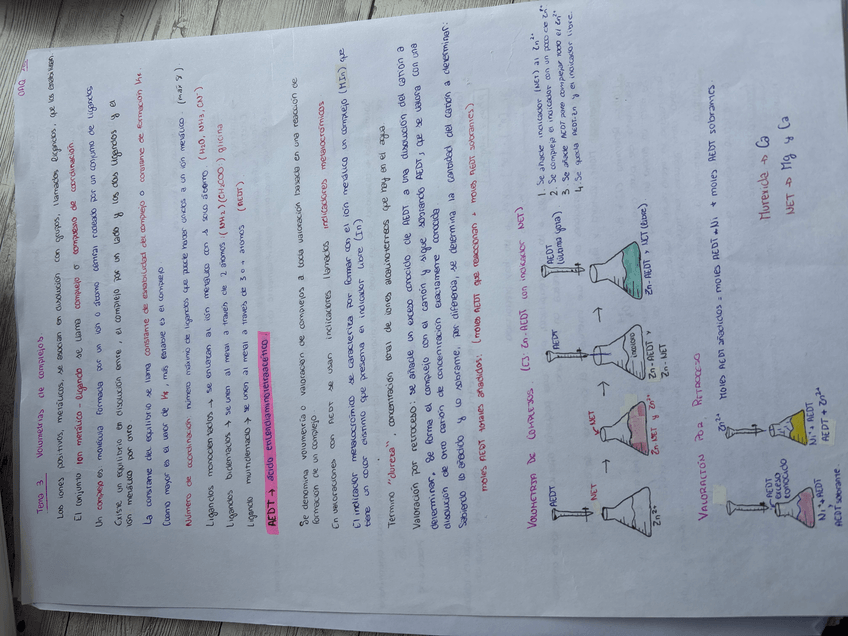 Tema 3 Volumetrías de complejos
Los iones positivos, metálicos, se asocian en disolución con grupos, llamados ligandos, que los estabilizan.
El conjunto ion metálico - ligando se llama complejo o compuesto de coordinación
Un complejo es molécula formada por un ion o átomo central rodeado por un conjunto de ligandos.
Existe un equilibrio en disolución entre, el complejo por un lado y los dos ligandos y el
ion metálico por otro
La constante del equilibrio se llama constante de estabilidad del complejo o constante de formación
Cuanto mayor es el valor de, más estable es el complejo
Número de coordinación número máximo de ligandos que puede haber unidos a un ión metálico (máx 8)
Ligandos monodentados → se enlazan al ión metálico con 1 solo átomo (H₂O, NH₃, CN⁻)
Ligandos bidentados → se unen al metal a través de 2 átomos (NH₂)(CH₂COO) glicina
Ligando multidentado → se unen al metal a través de 3 o + átomos (AEDT)
AEDT → ácido etilendiaminotetraacético.
Se denomina volumetría o valoración de complejos a toda valoración basada en una reacción de
formación de un complejo
En valoraciones con AEDT se usan indicadores llamados indicadores metalocrómicos
El indicador metalocrómico se caracteriza por formar con el ion metálico un complejo (MIn) que
tiene un color distinto que presenta el indicador libre (In)
Termino "dureza", concentración total de iones alcalinotérreos que hay en el agua
Valoración por retroceso: se añade un exceso conocido de AEDT a una disolución del catión a
determinar. Se forma el complejo con el catión y sigue sobrando AEDT, que se valora con una
disolución de otro catión de concentración exactamente conocida
Sabiendo lo añadido y lo sobrante, por diferencia, se determina la cantidad del catión a determinar:
moles AEDT totales añadidos: (moles AEDT que reaccionan + moles AEDT sobrantes)
VOLUMETRIA DE COMPLEJOS (Ej Zn-AEDT con indicador NET)
AEDT
Zn²⁺
NET
NET
Zn-NET y Zn²⁺
AEDT
incoloro
Zn-AEDT y
Zn-NET
AEDT
(última gota)
Zn-AEDT + NET (libre)
1. Se añade indicador (NET) al Zn²⁺
2. Se compleja el indicador con un poco de Zn²⁺
3. Se añade AEDT para complejar todo el Zn²⁺
4. Se queda AEDT-Zn y el indicador libre.
VALORACIÓN POR RETROCESO
AEDT
exceso
conocido
Ni, AEDT
AEDT sobrante
Zn²⁺
Ni + AEDT
AEDT + Zn²⁺
Moles AEDT añadidos = moles AEDT-Ni + moles AEDT sobrantes.
Murexide → Ca
NET → Mg y Ca